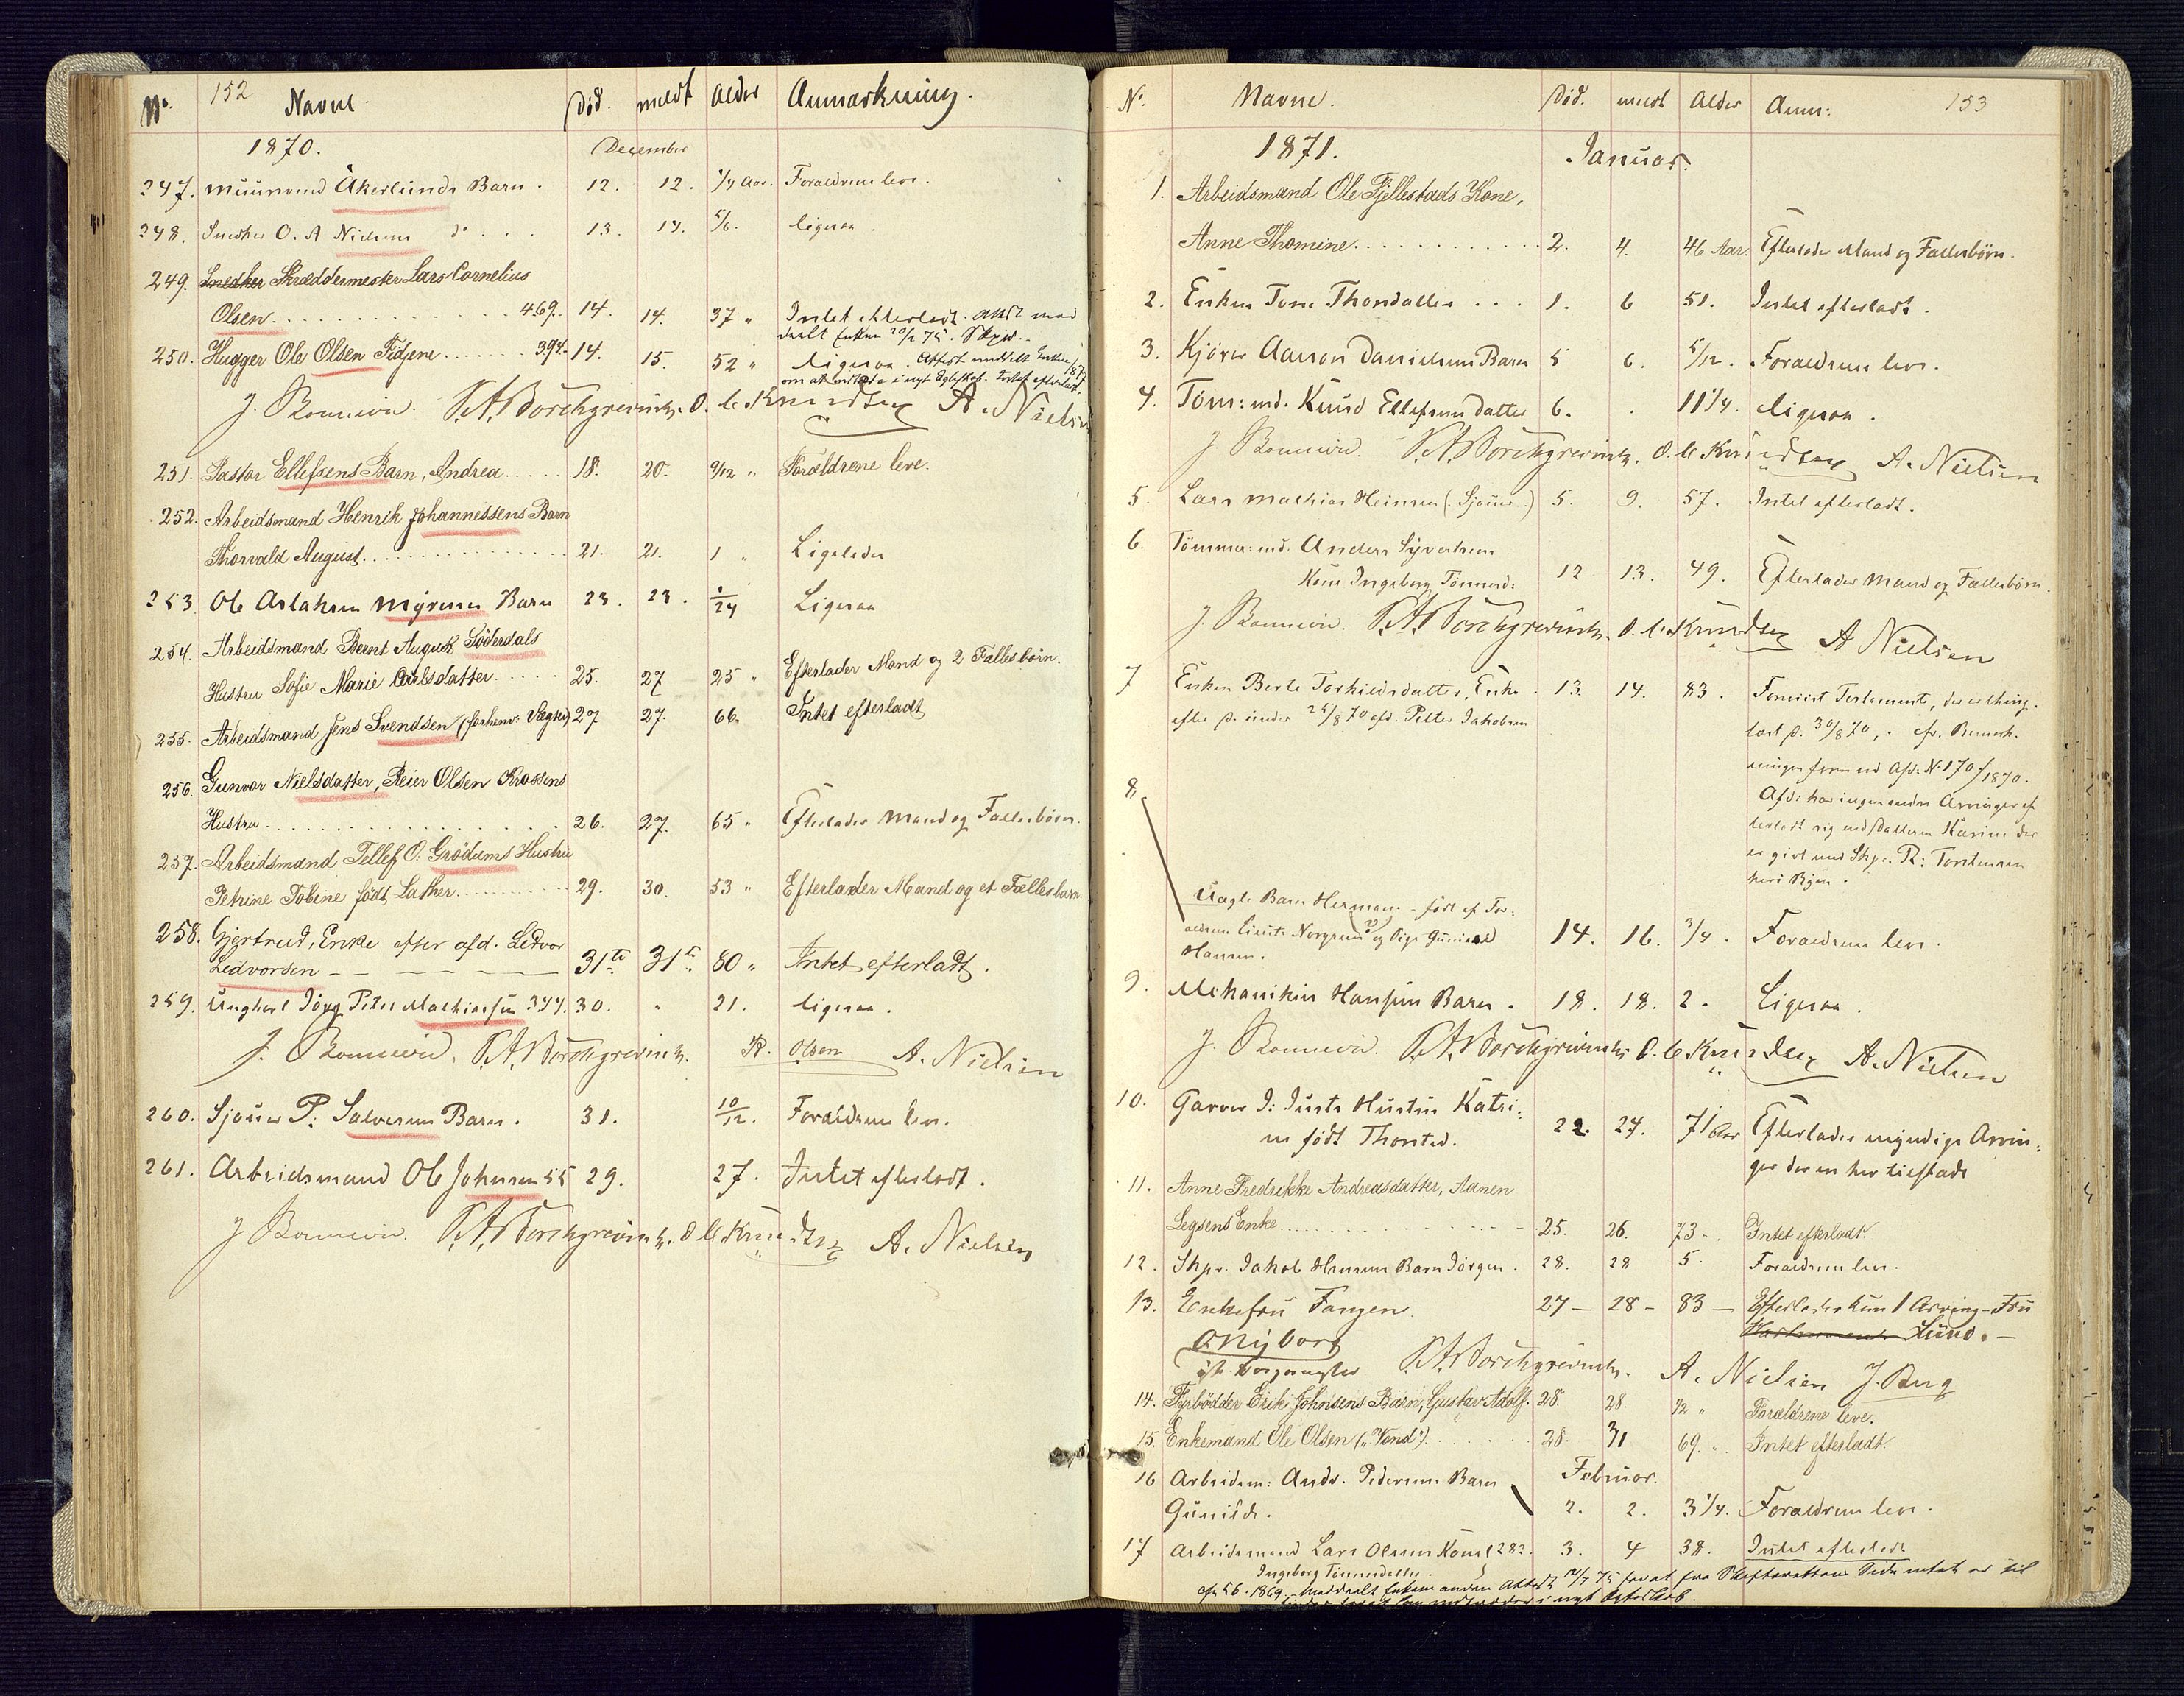 No. 152 Navne. Död. meldt Alder Anmærkning.
1870. December
247. Muursvend Åkerlunds Barn. 12. 12. 1/4 Aar. Forældrene leve.
248. Snedker O. A Nielsens do . . . 13. 14. 5/6. ligesaa.
249. Snedker Skræddermester Lars Cornelius
Olsen . . . . 469. 14. 14. 37 " Intet efterladt. Attst med
deelt Enken 20/12 75.
250. Hugger Ole Olsen Fidjene . . . . . . 394. 14. 15. 52 " ligesaa. Attest meddelt Enken
om at indtræde i nyt Egteskab. Intet efterladt.
J. P. A. Borchgrevink. O. C. Knudsen A. Nielsen
251. Pastor Ellefsens Barn, Andrea . . . . . 18. 20. 9/12 " Forældrene leve.
252. Arbeidsmand Henrik Johannessens Barn
Thorvald August . . . . 21. 21. 1 " Ligeledes
253. Ole Aslaksen Myrenes Barn 23. 23. 1/24 Ligesaa
254. Arbeidsmand Bernt August Söderdals
Hustru Sofie Marie Carlsdatter . . . . . 25. 27 25 " Efterlader Mand og 2 Fællesbörn.
255. Arbeidsmand Jens Svendsen (forhenv: Vægter) 27 27. 66. Intet efterladt
256. Gunvor Nielsdatter, Reier Olsen Krossens
Hustru . . . . 26. 27. 65 " Efterlader Mand og Fællesbörn.
257. Arbeidsmand Tellef O: Grödums Hustru
Petrine Tobine födt Lather . . . . 29. 30. 53 " Efterlader Mand og et Fællesbarn.
258. Gjertrud, Enke efter afd. Ledvor
Ledvorsen – – – – 31te 31te 80 " Intet efterladt.
259. Ungkarl Jörg Peter Mathiassen 344. 30. " 21. ligesaa.
J. P. A. Borchgrevink. R. Olsen A. Nielsen
260. Sjöuer P: Salvesens Barn. 31. 10/12. Forældrene leve.
261. Arbeidsmand Ole Johnsen 55 29. 27. Intet efterladt.
J P. A. Borchgrevink. O C Knudsen A. Nielsen
N. Navne. Död. meldt Alder Anm: 153
1871. Januar.
1. Arbeidsmand Ole Fjellestads Kone,
Anne Thomine . . . . 2. 4. 46 Aar. Efterlader Mand og Fællesbörn.
2. Enken Tone Thorsdatter . . . 1. 6 51. Intet efterladt.
3. Kjörer Aanon Danielsens Barn 5 6. 5/12. Forældrene leve.
4. Töm: md. Knud Ellefsens Datter 6. . 11 1/4. ligesaa.
J. P. A. Borchgrevink. O. C. Knudsen A. Nielsen
5. Lars Mathias Heinsen (Sjöuer) 5. 9. 57. Intet efterladt.
6. Tömmer: md. Anders Syvertsens
Kone Ingeborg Tönnesd: 12 13. 49. Efterlader Mand og Fællesbörn.
J. P. A. Borchgrevink. O. C. Knudsen A Nielsen
7 Enken Berte Torkildsdatter, Enke 13. 14. 83. Formeent Testament, der er thing-
efter p. under 25/8 70 afd. Petter Jakobsen
læst p. 30/8 70, . cfr. Bemærk-
ningen foran ved Afd. N. 170/1870.
Afd: har ingen andre Arvinger ef
terladt sig end Datteren Karine der
er givt med Skpr. R: Torstensen
heri Byen.
8.
Uægte Barn Herman – födt af For-
ældrene Lieut: Norgreen (?) og Pige Gunild
Hansen. 14. 16. 3/4. Forældrene leve.
9. Mekanikus Hansens Barn. 18. 18. 2. Ligesaa.
J. P. A. Borchgrevink O. C. Knudsen A. Nielsen
10. Garver J: Justs Hustru Katri-
ne födt Thorsted. 22. 24. 71 Aar Efterlader myndige Arvin-
ger der er her tilstæde
11. Anne Fredrikke Andreasdatter, Aanen
Legsens Enke . . . . 25. 26. 73 " Intet efterladt.
12. Skpr. Jakob Hansens Barn Jörgen. 28. 28 5. Forældrene leve.
13. Enkefru Fangen. 27 – 28 – 83 – Efterlader kun 1 Arving – Fru
Lund. –
A Nyborg P. A. Borchgrevink. A. Nielsen J. Berg
14. Fyrbödder Erik Johnsens Barn, Gustav Adolf. 28. 28. 1/2 " Forældrene leve.
15. Enkemand Ole Olsen („Vand") . . . . 28. 31 69. " Intet efterladt.
Februar.
16 Arbeidsm: Andr. Pedersens Barn
Gunild. 2. 2. 3 1/4. Forældrene leve.
17 Arbeidsmand Lars Olsens Kone 282. 3. 4 38. Intet efterladt
Ingeborg Tönnesdatter.
cfr 56. 1869. – Meddeelt Enkemanden Attest 12/7 75 for at fra Skifterettens Side intet er til